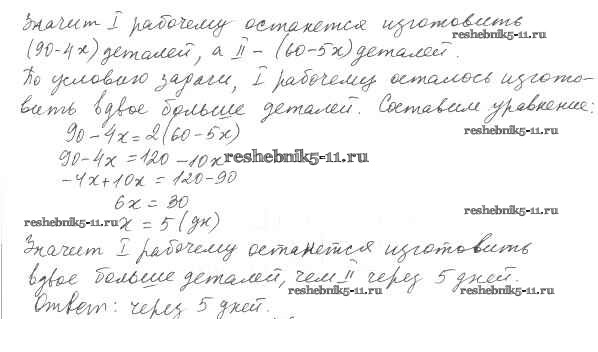 Значит I рабочему останется изготовить
(90-4x) деталей, а II - (60-5x) деталей.
reshebnik5-11.ru
По условию задачи, I рабочему осталось изгото-
вить вдвое больше деталей. Составим уравнение:
90-4x=2(60-5x)
reshebnik5-11.ru
90-4x=120-10x
reshebnik5-11.ru
-4x+10x=120-90
6x=30
reshebnik5-11.ru
reshebnik5-11.ru
x=5 (дн)
Значит I рабочему останется изготовить
вдвое больше деталей, чем II через 5 дней.
reshebnik5-11.ru
reshebnik5-11.ru
Ответ: через 5 дней.